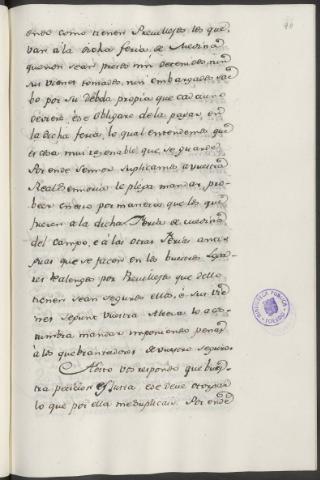 40
onde como tienen Previllejos los que
van á la dicha feria de Medina
que non sean presos nin detenidos nin
sus vienes tomados, nin embargados sal
bo por su debda propia que cada uno
deviere, é se obligare de la pagar en
la dicha feria, lo qual entendemos que
es cosa mui razonable que se guarde
Por ende Señor Suplicamos á vuestra
Real Señoria le plega mandar, pro-
beer cerca por manera que los que
fueren á la dicha Feria de medina
del campo, e á las otras Ferias anci-
pias que se facen en los buestros Lga-
res Realengos por Previllejos que dello
tienen sean seguros ellos, é sus vie-
nes segunt vuestra Alteza lo acos-
tumbra mandar imponiendo penas
á los quebrantadores de vuestro seguro.
Aesto vos respondo que bues-
tra peticion es Justa e se deve otorgar
lo que por ella me Suplicais. Por ende
BIBLIOTECA PUBLICA
TOLEDO